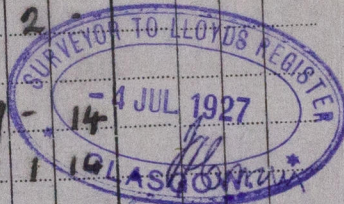 2
SURVEYOR TO LLOYDS REGISTER
-4 JUL 1927
14
1 10
GLASGOW